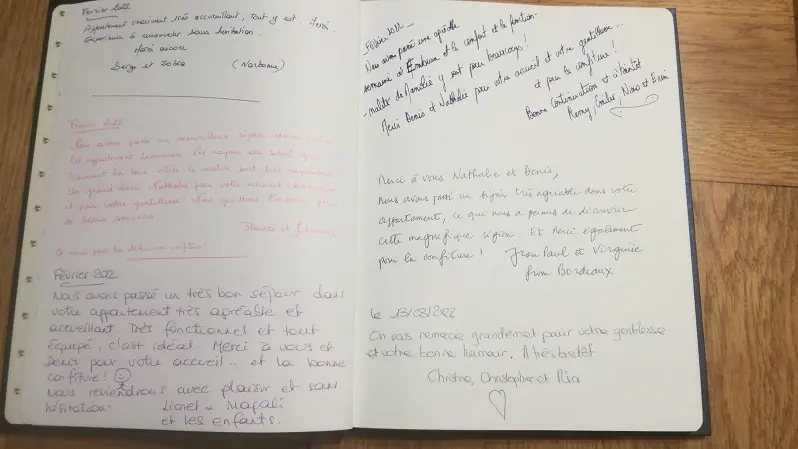 Février 2022
Appartement vraiment très accueillant, tout y est.
Expérience à renouveler sans hésitation.
Merci encore
Serge et (Narbonne)
Février 2022
Nous avons passé un merveilleux séjour dans
cet appartement lumineux. Les rayons du soleil qui
la baie vitrée le matin sont très
Un grand merci Nathalie pour votre accueil
et pour votre gentillesse. Nous quittons Embrun
de bons souvenirs.
et
Et merci pour la délicieuse confiture!
Février 2022
Nous avons passé un très bon séjour dans
votre appartement très agréable et
accueillant. Très fonctionnel et tout
équipé, c'est idéal. Merci à vous et
Denis pour votre accueil... et la bonne
confiture!
Nous reviendrons avec plaisir et sans
hésitation. Lionel Magali
et les enfants.
Février 2022
Nous avons passé une agréable
semaine à Embrun et le confort et la fonction-
-nalité de y sont pour beaucoup!
Merci Denis et Nathalie pour votre accueil et votre gentillesse...
et pour la confiture!
Bonne continuation et à bientôt
Remy, Emilie, Nino et
Merci à vous Nathalie et Denis,
nous avons passé un séjour très agréable dans votre
appartement, ce qui nous a permis de découvrir
cette magnifique région. Et merci également
pour la confiture! Jean Paul et Virginie
from Bordeaux
Le 13/03/2022
On vous remercie grandement pour votre gentillesse
et votre bonne humeur. A très bientôt
Christine, Christopher et Ria